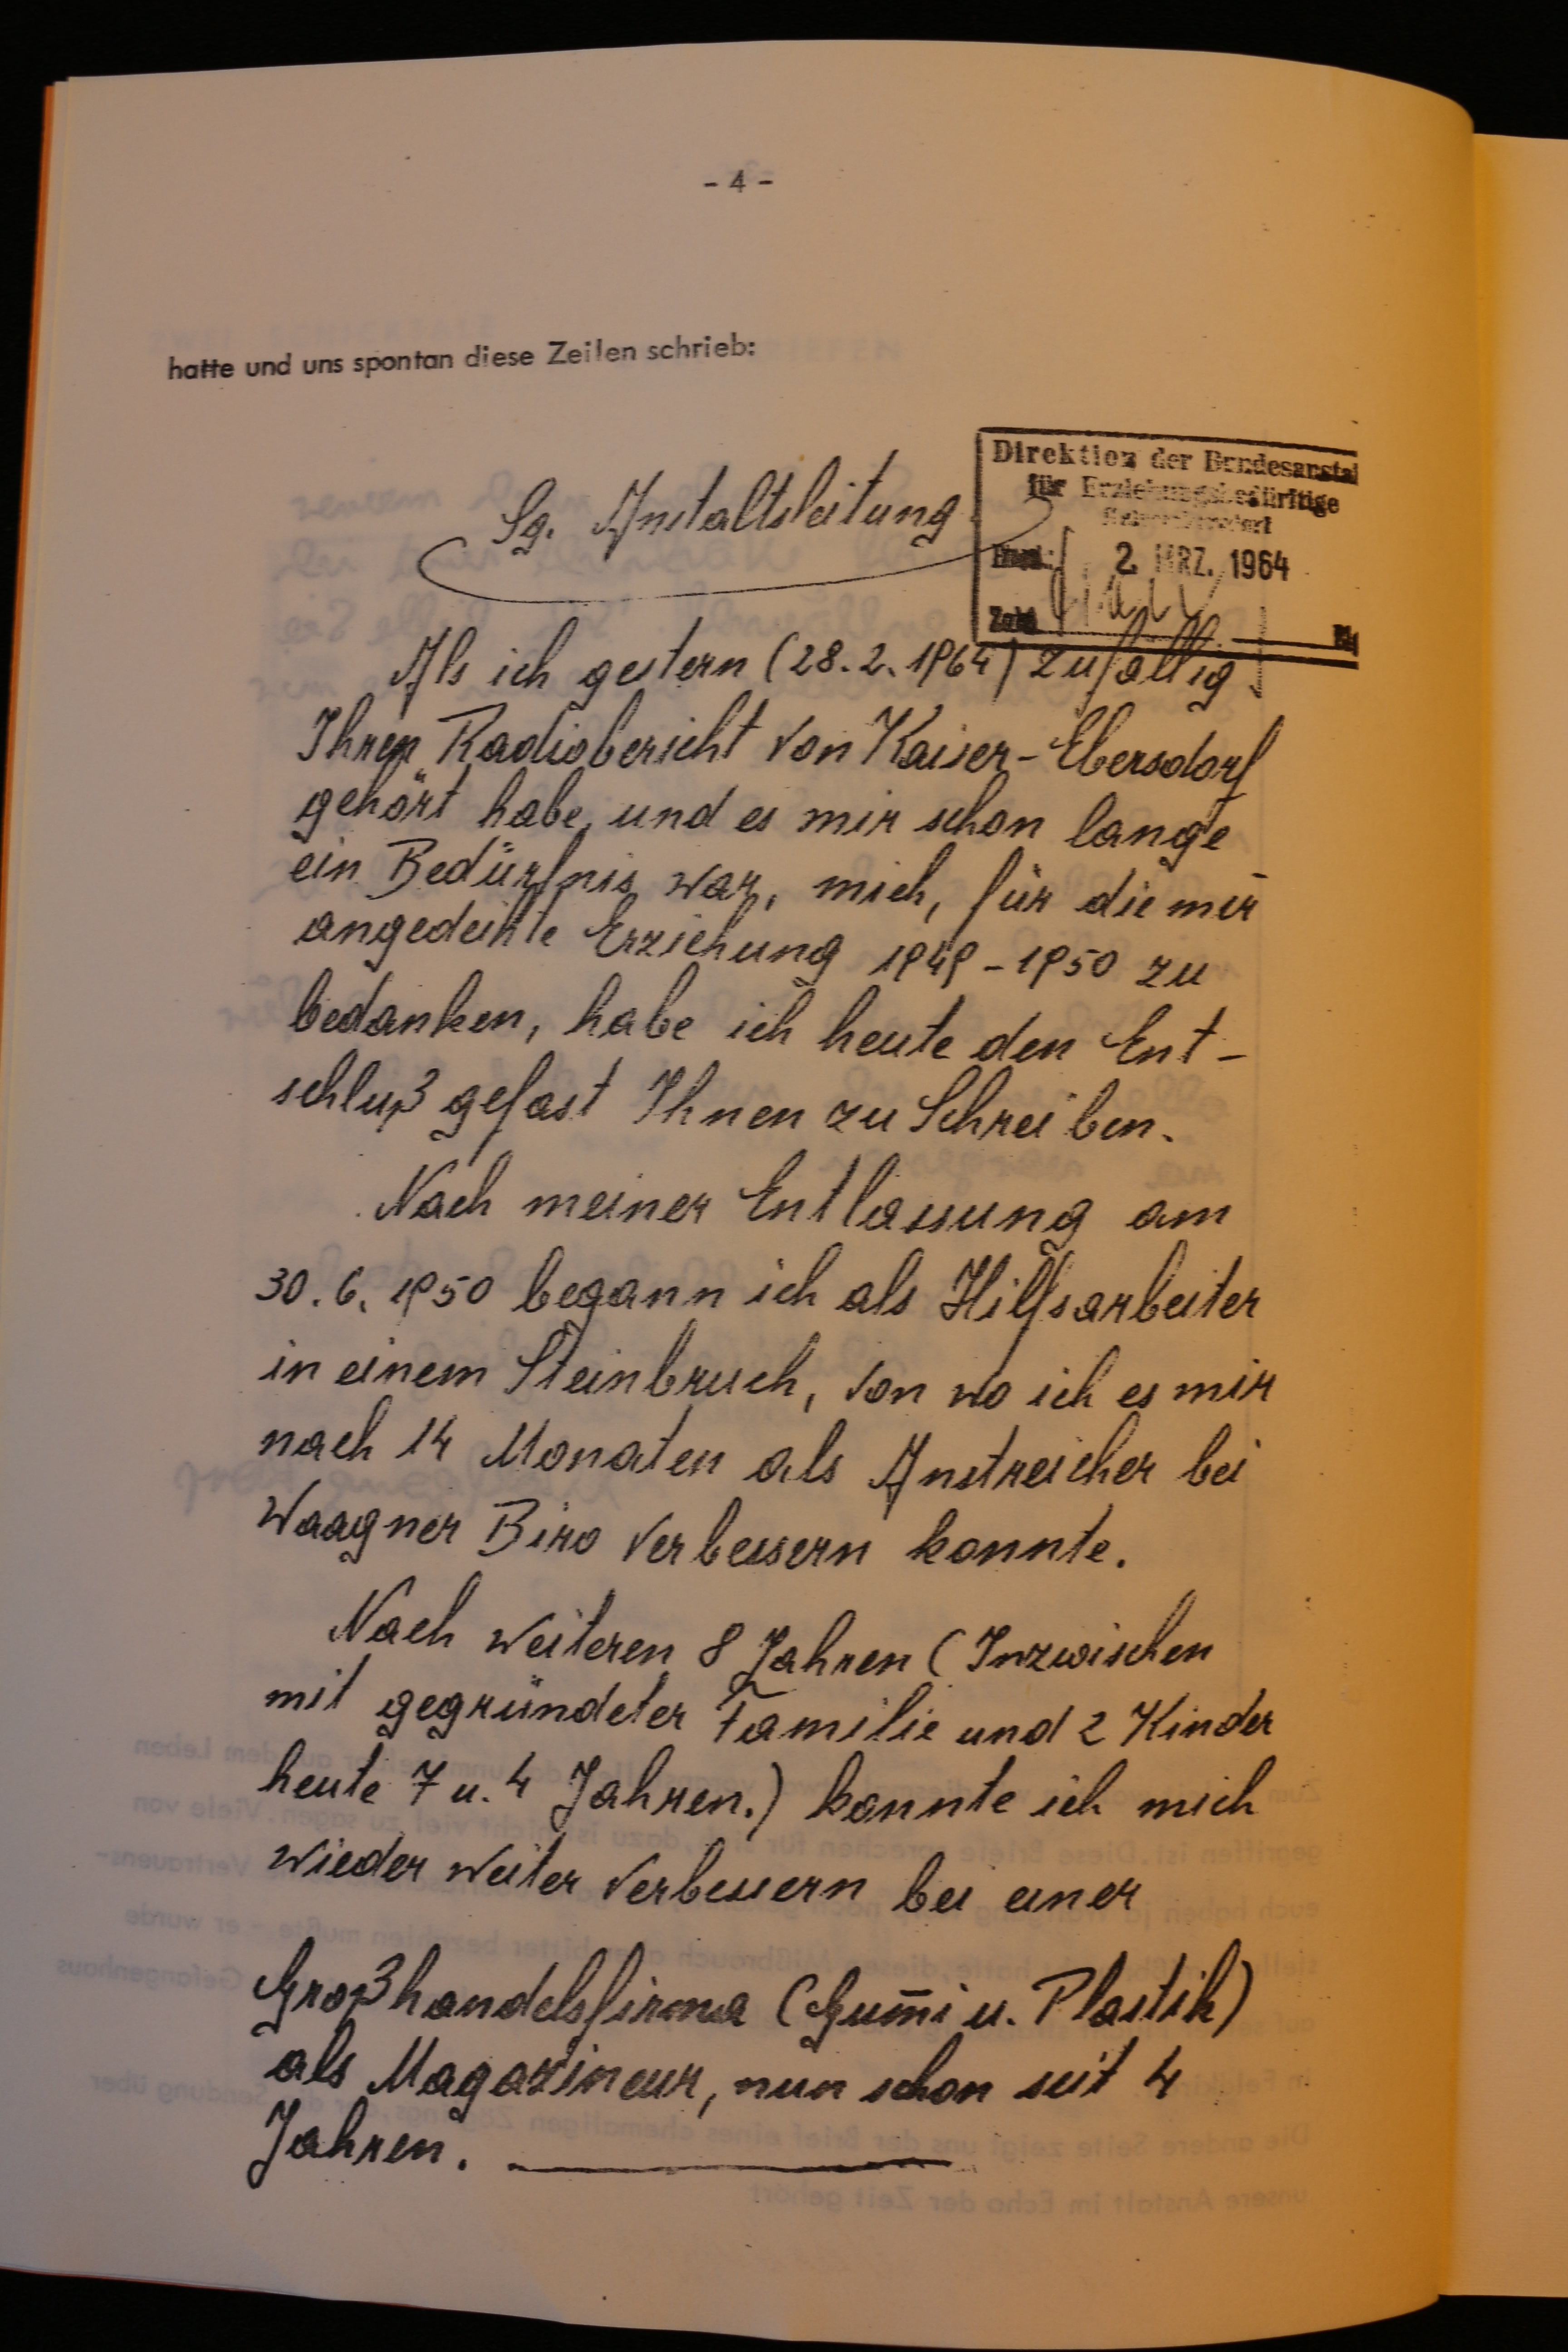 - 4 -
hatte und uns spontan diese Zeilen schrieb:
Direktion der Bundesanstal
für Erziehungsbedürftige
2. MRZ. 1964
Zahl
Sg. Anstaltsleitung
Als ich gestern (28.2.1964) zufällig
Ihren Radiobericht von Kaiser-Ebersdorf
gehört habe, und es mir schon lange
ein Bedürfnis war, mich, für die mir
angedeihte Erziehung 1949-1950 zu
bedanken, habe ich heute den Ent-
schluß gefast Ihnen zu Schreiben.
Nach meiner Entlassung am
30.6.1950 begann ich als Hilfsarbeiter
in einem Steinbruch, von wo ich es mir
nach 14 Monaten als Anstreicher bei
Waagner Biro verbessern konnte.
Nach weiteren 8 Jahren (Inzwischen
mit gegründeter Familie und 2 Kinder
heute 7 u. 4 Jahren.) konnte ich mich
wieder weiter verbessern bei einer
Großhandelsfirma (Gum̄i u. Plastik)
als Magazineur, nun schon seit 4
Jahren.